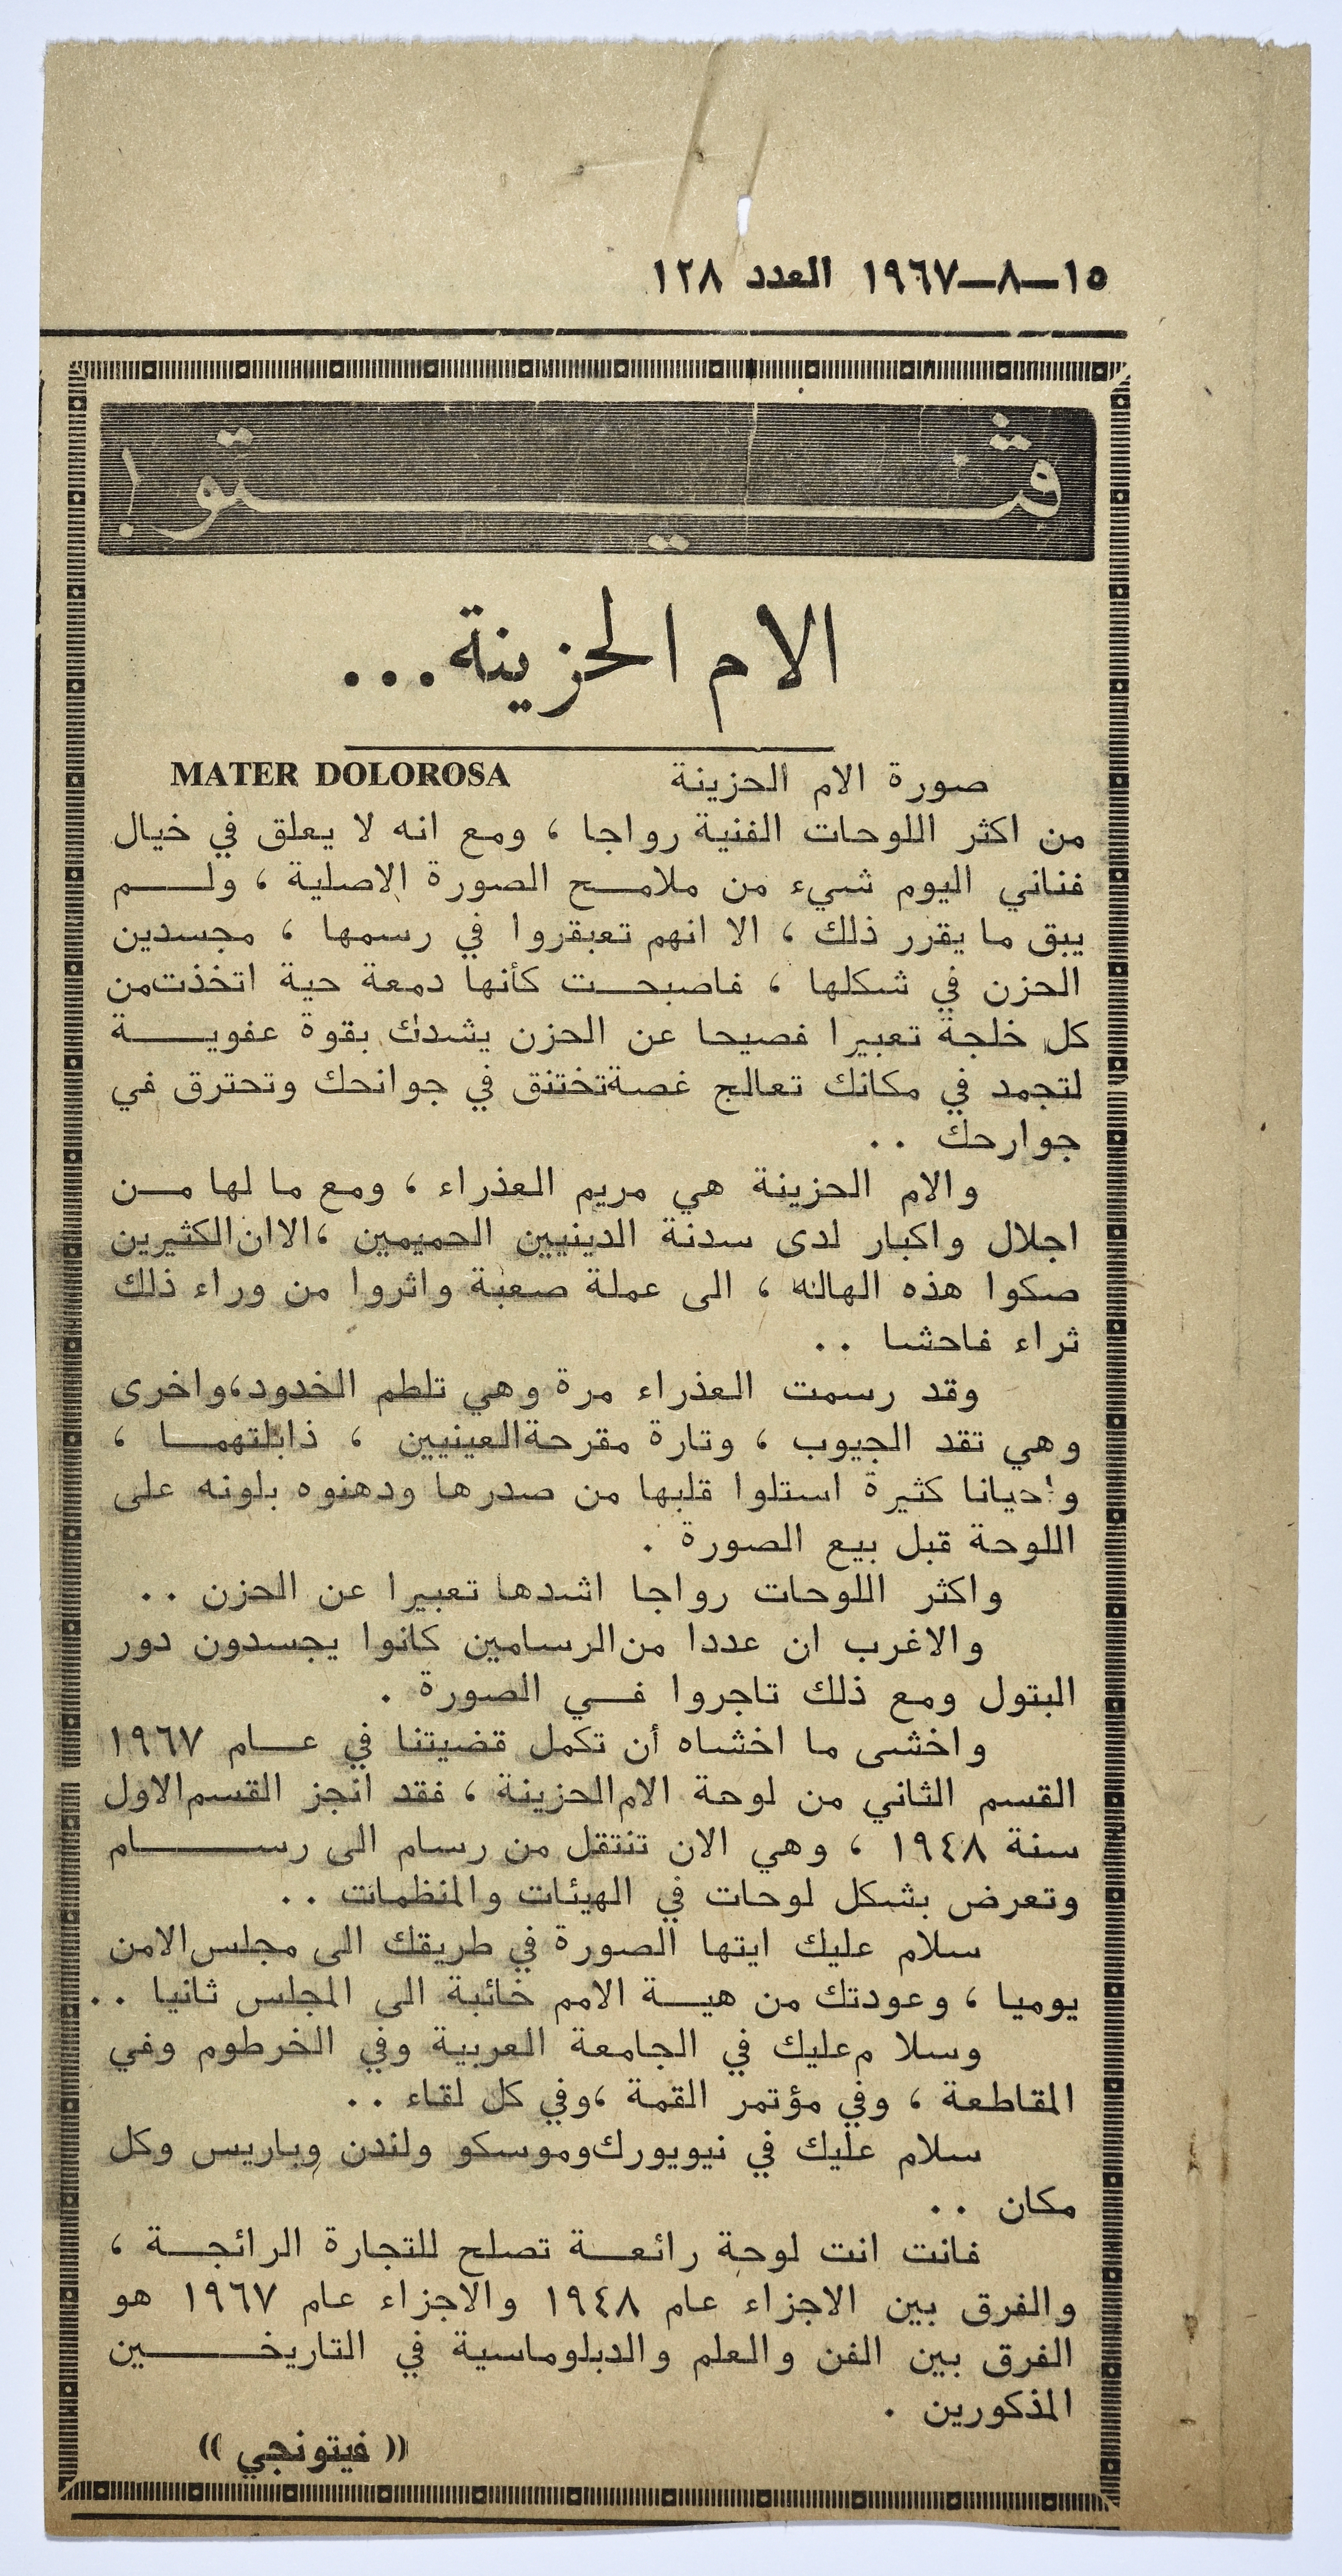 ١٥-٨-١٩٦٧ العدد ١٢٨
ڤيتو !
الام الحزينة ...
صورة الام الحزينة MATER DOLOROSA
من اكثر اللوحات الفنية رواجا ، ومع انه لا يعلق في خيال
فناني اليوم شيء من ملامح الصورة الاصلية ، ولم
يبق ما يقرر ذلك ، الا انهم تعبقروا في رسمها ، مجسدين
الحزن في شكلها ، فاصبحت كأنها دمعة حية اتخذت من
كل خلجة تعبيرا فصيحا عن الحزن يشدك بقوة عفوية
لتجمد في مكانك تعالج غصة تختنق في جوانحك وتحترق في
جوارحك ..
والام الحزينة هي مريم العذراء ، ومع ما لها من
اجلال واكبار لدى سدنة الدينيين الحميمين ، الا ان الكثيرين
صكوا هذه الهاله ، الى عملة صعبة واثروا من وراء ذلك
ثراء فاحشا ..
وقد رسمت العذراء مرة وهي تلطم الخدود ، واخرى
وهي تقد الجيوب ، وتارة مقرحة العينيين ، ذابلتهما ،
واحيانا كثيرة استلوا قلبها من صدرها ودهنوه بلونه على
اللوحة قبل بيع الصورة .
واكثر اللوحات رواجا اشدها تعبيرا عن الحزن ..
والاغرب ان عددا من الرسامين كانوا يجسدون دور
البتول ومع ذلك تاجروا في الصورة .
واخشى ما اخشاه أن تكمل قضيتنا في عام ١٩٦٧
القسم الثاني من لوحة الام الحزينة ، فقد انجز القسم الاول
سنة ١٩٤٨ ، وهي الان تنتقل من رسام الى رسام
وتعرض بشكل لوحات في الهيئات والمنظمات ..
سلام عليك ايتها الصورة في طريقك الى مجلس الامن
يوميا ، وعودتك من هيـة الامم خائبة الى المجلس ثانيا ..
وسلا م عليك في الجامعة العربية وفي الخرطوم وفي
المقاطعة ، وفي مؤتمر القمة ، وفي كل لقاء ..
سلام عليك في نيويورك وموسكو ولندن وباريس وكل
مكان ..
فانت انت لوحة رائعة تصلح للتجارة الرائجة ،
والفرق بين الاجزاء عام ١٩٤٨ والاجزاء عام ١٩٦٧ هو
الفرق بين الفن والعلم والدبلوماسية في التاريخين
المذكورين .
(( فيتونجي ))